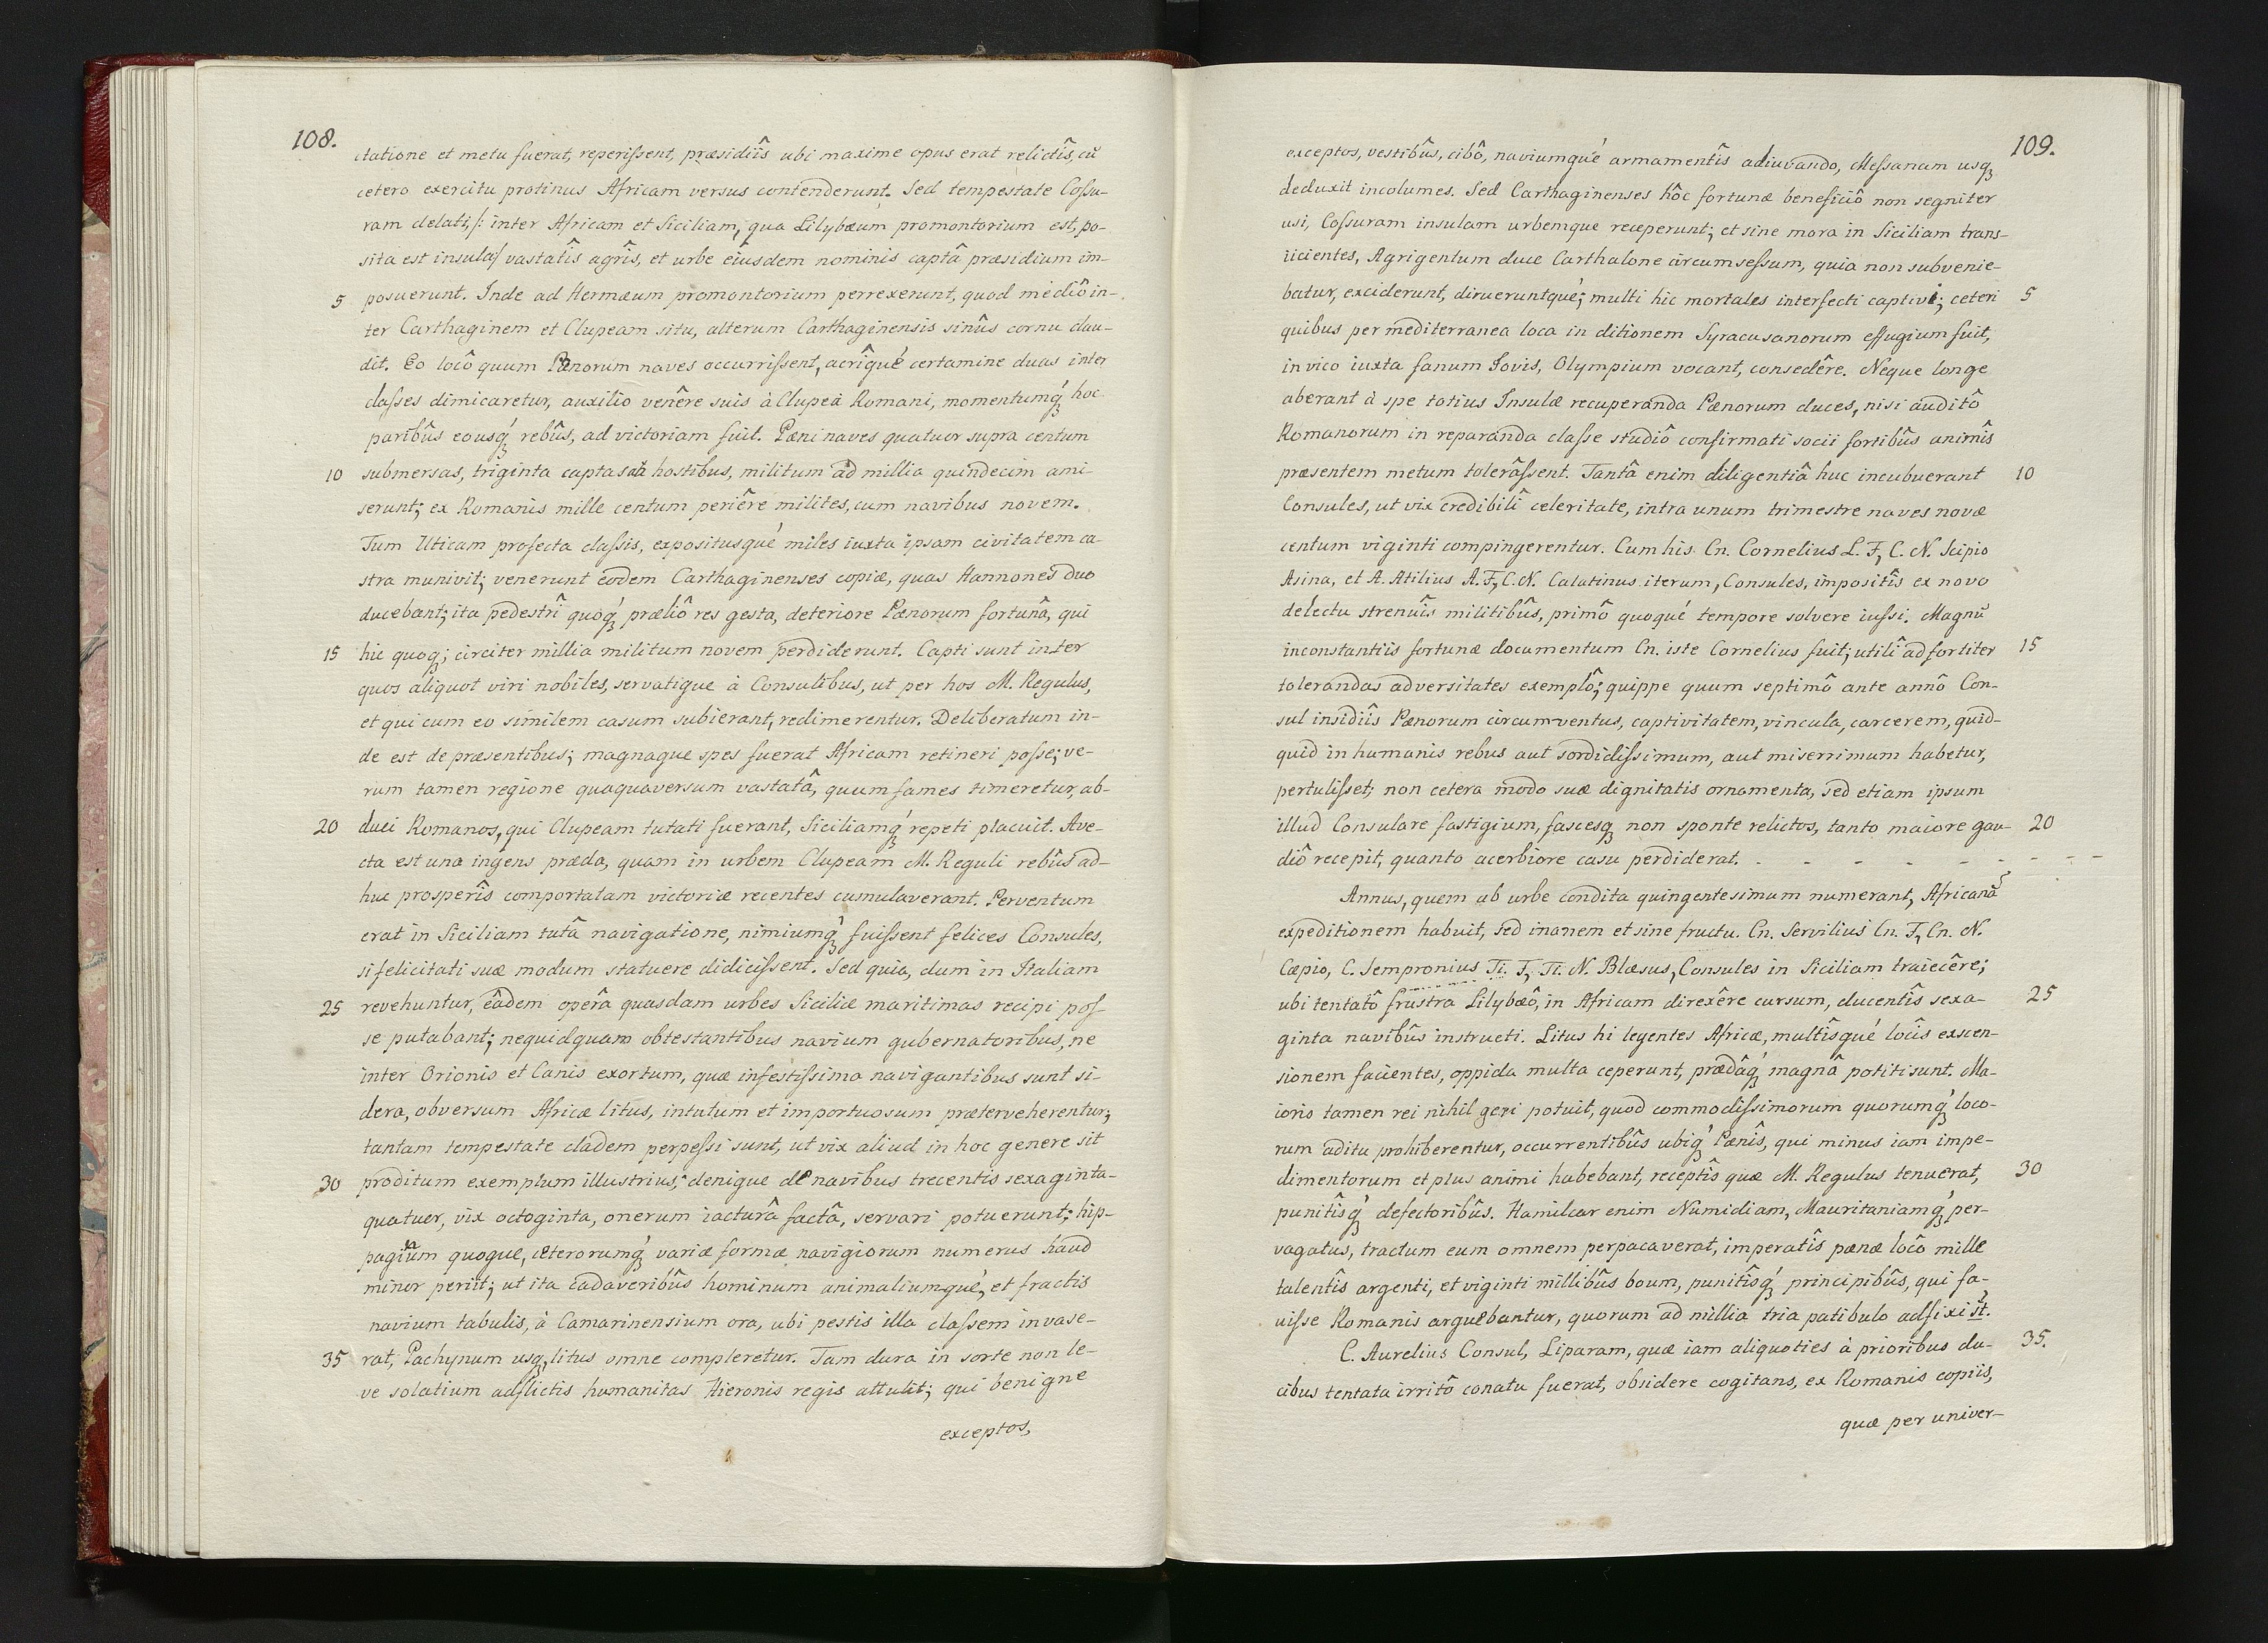 108.
ctatione et metu fuerat, reperissent, præsidiîs ubi maxime opus erat relictîs, cũ
cetero exercitu protinus Africam versus contenderunt. Sed tempestate Cossu-
ram delati, /: inter Africam et Siciliam, qua Lilybæum promontorium est, po-
sita est insula/ vastatîs agrîs, et urbe eiusdem nominis captâ præsidium im-
5 posuerunt. Inde ad Hermæum promontorium perrexerunt, quod mediô in-
ter Carthaginem et Clupeam situ, alterum Carthaginensis sinûs cornu clau-
dit. Eo locô quum Pœnorum naves occurrissent, acrîqué certamine duas inter
classes dimicaretur, auxilio venêre suis à Clupeâ Romani, momentumq́ hoc
paribûs eousq́ rebûs, ad victoriam fuit. Pœni naves quatuor supra centum
10 submersas, triginta captas ab hostibus, militum ad millia quindecim ami-
serunt; ex Romanis mille centum periêre milites, cum navibus novem.
Tum Uticam profecta classis, expositusqué miles iuxta ipsam civitatem ca-
stra munivit; venerunt eodem Carthaginenses copiæ, quas Hannones duo
ducebant; ita pedestrî quoq́ præliô res gesta, deteriore Pœnorum fortunâ, qui
15 hic quoq; circiter millia militum novem perdiderunt. Capti sunt inter
quos aliquot viri nobiles, servatique à Consulibus, ut per hos M. Regulus,
et qui cum eo similem casum subierant, redimerentur. Deliberatum in-
de est de præsentibus; magnaque spes fuerat Africam retineri posse; ve-
rum tamen regione quaquaversum vastatâ, quum fames timeretur, ab-
20 duci Romanos, qui Clupeam tutati fuerant, Siciliamq́ repeti placuit. Ave-
cta est una ingens præda, quam in urbem Clupeam M. Reguli rebûs ad-
huc prosperîs comportatam victoriæ recentes cumulaverant. Perventum
erat in Siciliam tutâ navigatione, nimiumq́ fuissent felices Consules,
si felicitati suæ modum statuere didicissent. Sed quia, dum in Italiam
25 revehuntur, eâdem operâ quasdam urbes Siciliæ maritimas recipi pos-
se putabant; nequidquam obtestantibus navium gubernatoribus, ne
inter Orionis et Canis exortum, quæ infestissima navigantibus sunt si-
dera, obversum Africæ litus, intutum et importuosum præterveherentur;
tantam tempestate cladem perpessi sunt, ut vix aliud in hoc genere sit
30 proditum exemplum illustrius; denique de navibus trecentis sexaginta-
quatuor, vix octoginta, onerum iacturâ factâ, servari potuerunt; hip-
pagium quoque, ceterorumq́ variæ formæ navigiorum numerus haud
minor periit; ut ita cadaveribûs hominum animaliumqué, et fractis
navium tabulis, à Camarinensium ora, ubi pestis illa classem invase-
35 rat, Pachynum usq, litus omne compleretur. Tam dura in sorte non le-
ve solatium adflictis humanitas Hieronis regis attulit; qui benigne
exceptos,
109.
exceptos, vestibûs, cibô, naviumqué armamentîs adiuvando, Messanam usq
deduxit incolumes. Sed Carthaginenses hôc fortunæ beneficiô non segniter
usi, Cossuram insulam urbemque receperunt; et sine mora in Siciliam trans-
iicientes, Agrigentum duce Carthalone circumsessum, quia non subvenie-
batur, exciderunt, dirueruntqué; multi hic mortales interfecti captivi; ceteri 5
quibus per mediterranea loca in ditionem Syracusanorum effugium fuit,
in vico iuxta fanum Iovis, Olympium vocant, consedêre. Neque longe
aberant à spe totius Insulæ recuperanda Pœnorum duces, nisi auditô
Romanorum in reparanda classe studiô confirmati socii fortibûs animîs
præsentem metum tolerâssent. Tantâ enim diligentiâ huc incubuerant 10
Consules, ut vix credibilî celeritate, intra unum trimestre naves novæ
centum viginti compingerentur. Cum his Cn. Cornelius L. F, C. N. Scipio
Asina, et A. Atilius A. F, C. N. Calatinus iterum, Consules, impositîs ex novo
delectu strenuîs militibûs, primô quoqué tempore solvere iussi. Magnũ
inconstantiis fortunæ documentum Cn. iste Cornelius fuit; utilî ad fortiter 15
tolerandas adversitates exemplô; quippe quum septimô ante annô Con-
sul insidiîs Pœnorum circumventus, captivitatem, vincula, carcerem, quid-
quid in humanis rebus aut sordidissimum, aut miserrimum habetur,
pertulisset; non cetera modo suæ dignitatis ornamenta, sed etiam ipsum
illud Consulare fastigium, fascesq non sponte relictos, tanto maiore gau- 20
diô recepit, quanto acerbiore casu perdiderat. - - - - - - - -
Annus, quem ab urbe condita quingentesimum numerant, Africanã
expeditionem habuit, sed inanem et sine fructu. Cn. Servilius Cn. F, Cn. N.
Cæpio, C. Sempronius Ti. F, Ti. N. Blæsus, Consules in Siciliam traiecêre;
ubi tentatô frustra Lilybæô, in Africam direxêre cursum, ducentîs sexa- 25
ginta navibûs instructi. Litus hi legentes Africæ, multîsqué locîs exscen-
sionem facientes, oppida multa ceperunt, prædâq́ magnâ potiti sunt. Ma-
ioris tamen rei nihil geri potuit, quod commodissimorum quorumq́ loco-
rum aditu prohiberentur, occurrentibûs ubiq́ Pœnîs, qui minus iam impe-
dimentorum et plus animi habebant, receptîs quæ M. Regulus tenuerat, 30
punitîsq́ defectoribûs. Hamilcar enim Numidiam, Mauritaniamq́ per-
vagatus, tractum eum omnem perpacaverat, imperatîs pœnæ locô mille
talentîs argenti, et viginti millibûs boum, punitîsq́ principibûs, qui fa-
visse Romanis arguebantur, quorum ad millia tria patibulo adfixi st.
C. Aurelius Consul, Liparam, quæ iam aliquoties à prioribus du- 35.
cibus tentata irritô conatu fuerat, obsidere cogitans, ex Romanis copiis,
quæ per univer-